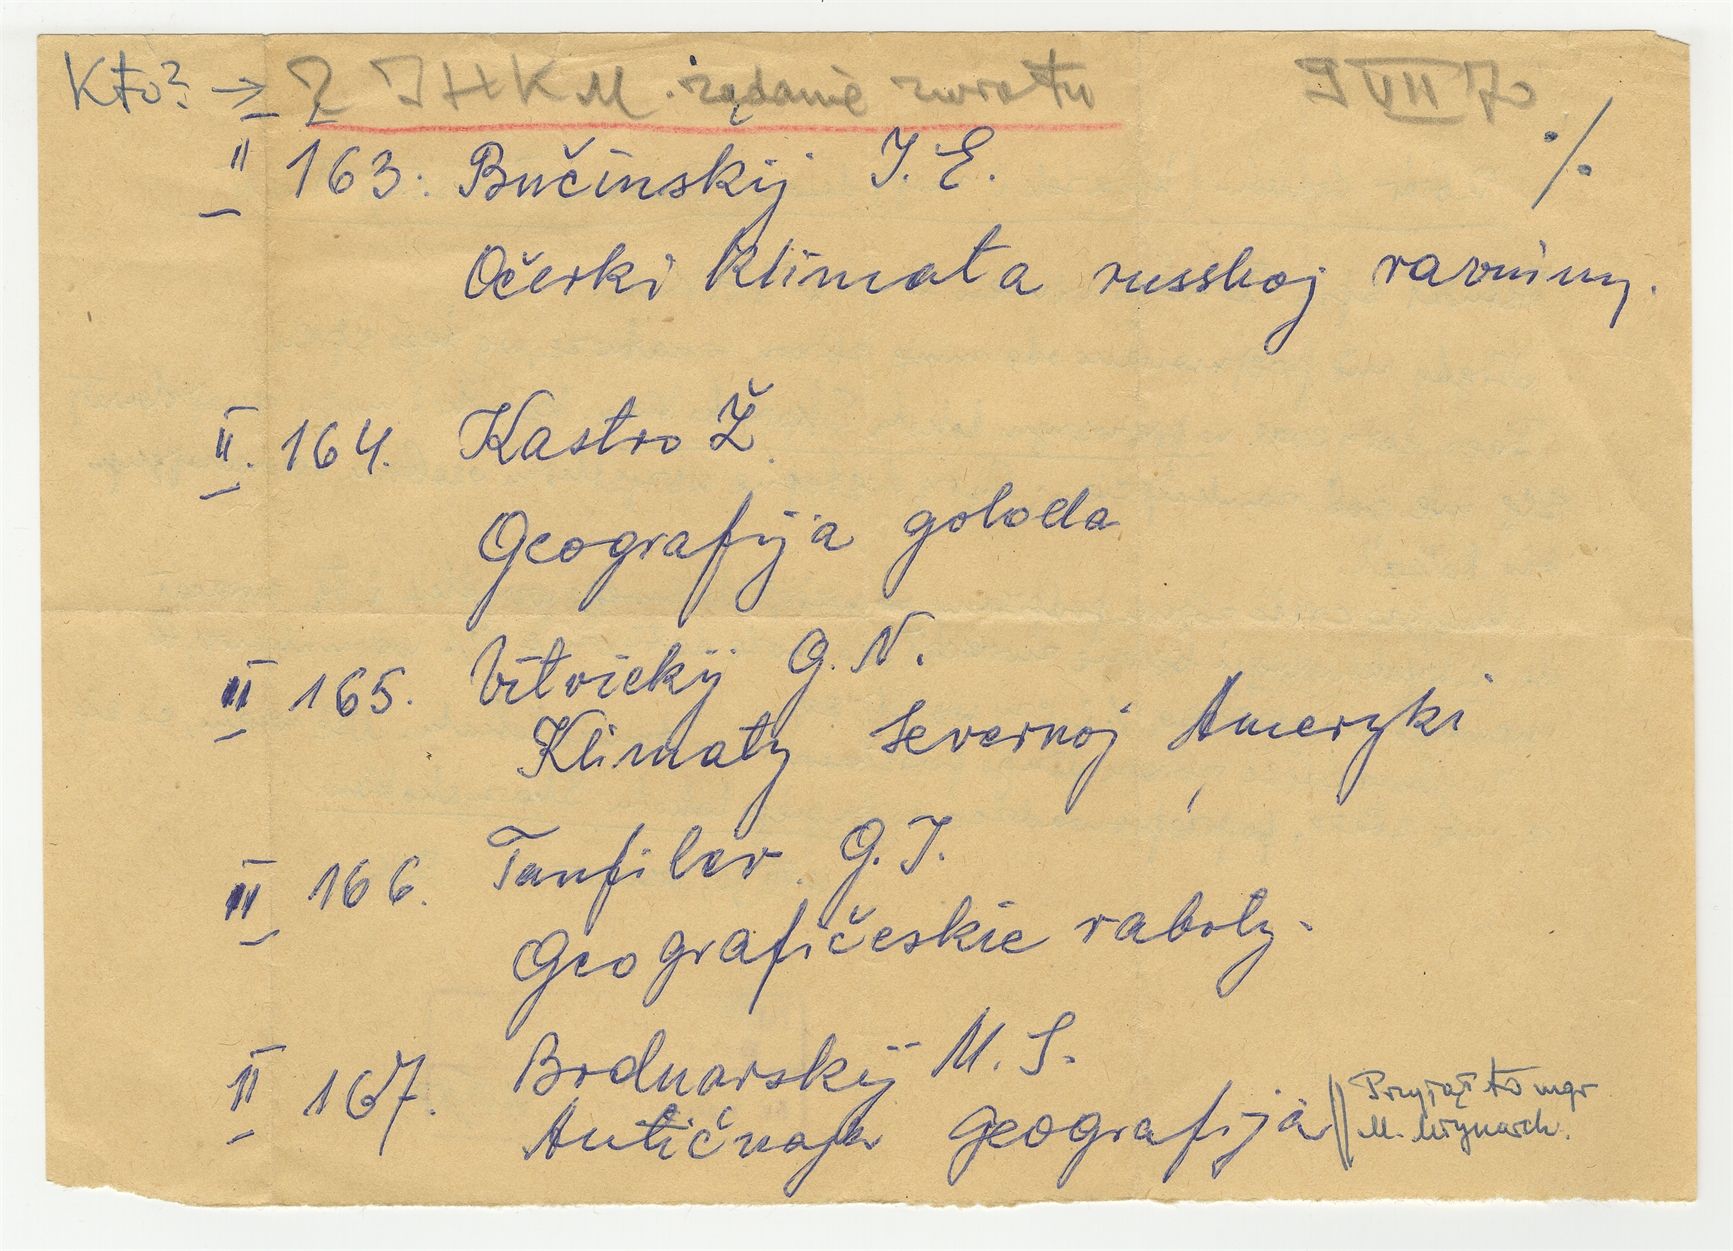 Kto? → Z IHKM żądanie zwrotu I VII 70
II 163. Bučinskij I. E. ./.
Očerki klimata russkoj ravniny.
II. 164. Kastro Ž.
Geografija goloda
II 165. Vitvickij G. N.
Klimaty severnoj Ameryki
II 166. Tanfilev G. I.
Geografičeskie raboty.
II 167. Bodnarskij M. S.
Antičnaja geografija // Przyjął to mgr
M. Młynarch.